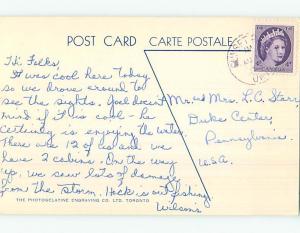 POST CARD CARTE POSTALE
Hi Folks,
It was cool here today
so we drove around to
see the sights. Joe doesn't
mind if it is cool - he
certainly is enjoying the water.
There are 12 of us and we
have 2 cabins. On the way
up, we saw lots of damage
from the storm. Hock is out fishing.
Wilsons
Mr. and Mrs. L.C. Starr,
Duke Center,
Pennsylvania.
U.S.A.
THE PHOTOGELATINE ENGRAVING CO. LTD. TORONTO